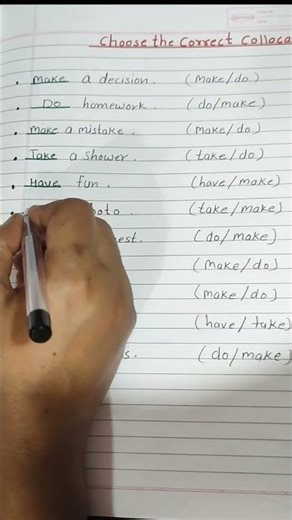 Choose the Correct Colloca
• Make a decision. (Make/do)
• Do homework. (do/make)
• Make a mistake. (Make/do)
• Take a shower. (take/do)
• Have fun. (have/make)
• hoto. (take/make)
est. (do/make)
(Make/do)
(Make/do)
(have/take)
s. (do/make)